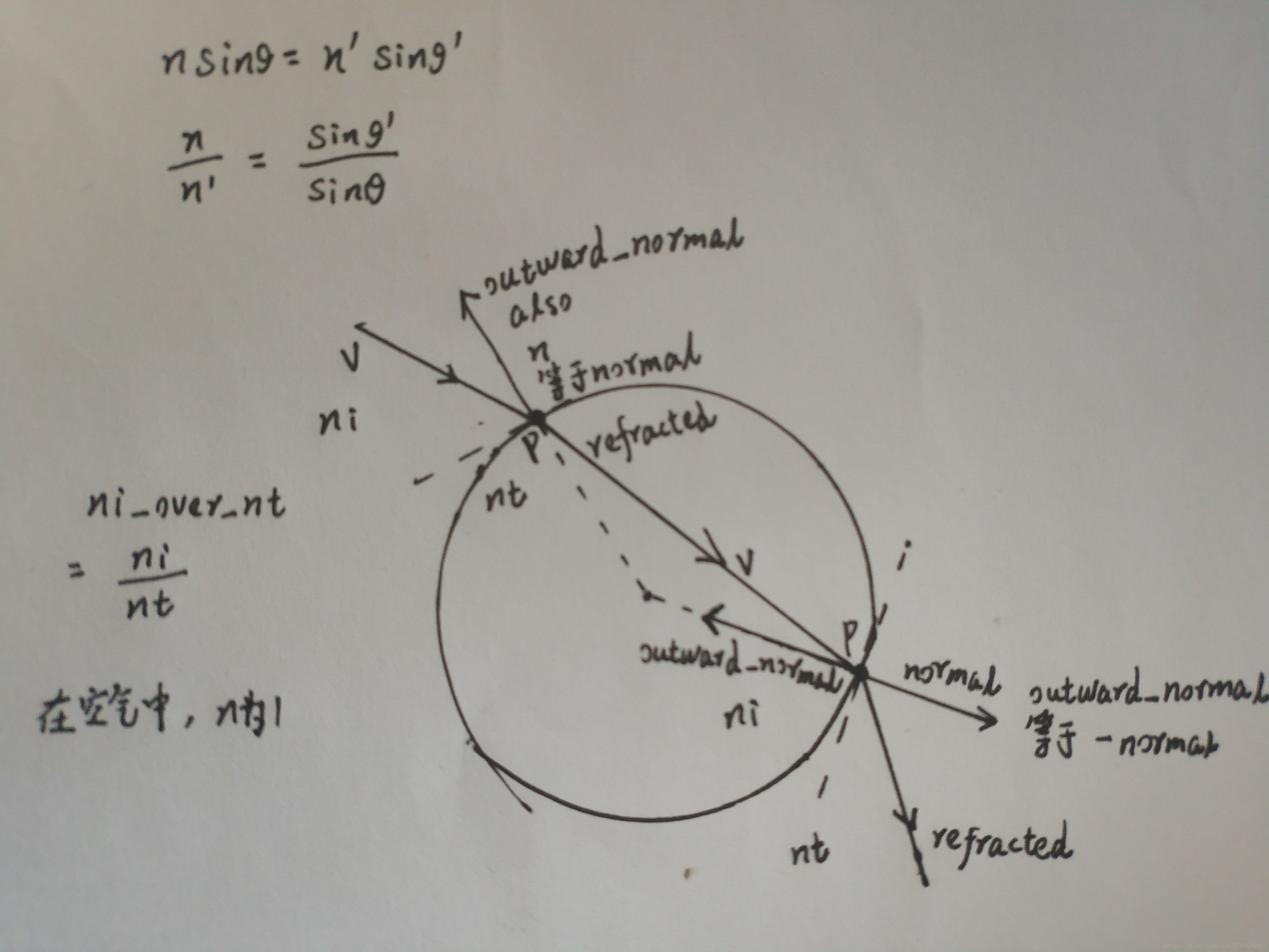 n sinθ = n' sinθ'
n / n' = sinθ' / sinθ
outward_normal
also
n
等于normal
V
ni
P
refracted
nt
ni_over_nt
= ni / nt
V
i
P
outward_normal
normal
outward_normal
等于 -normal
ni
在空气中，n为1
nt
refracted